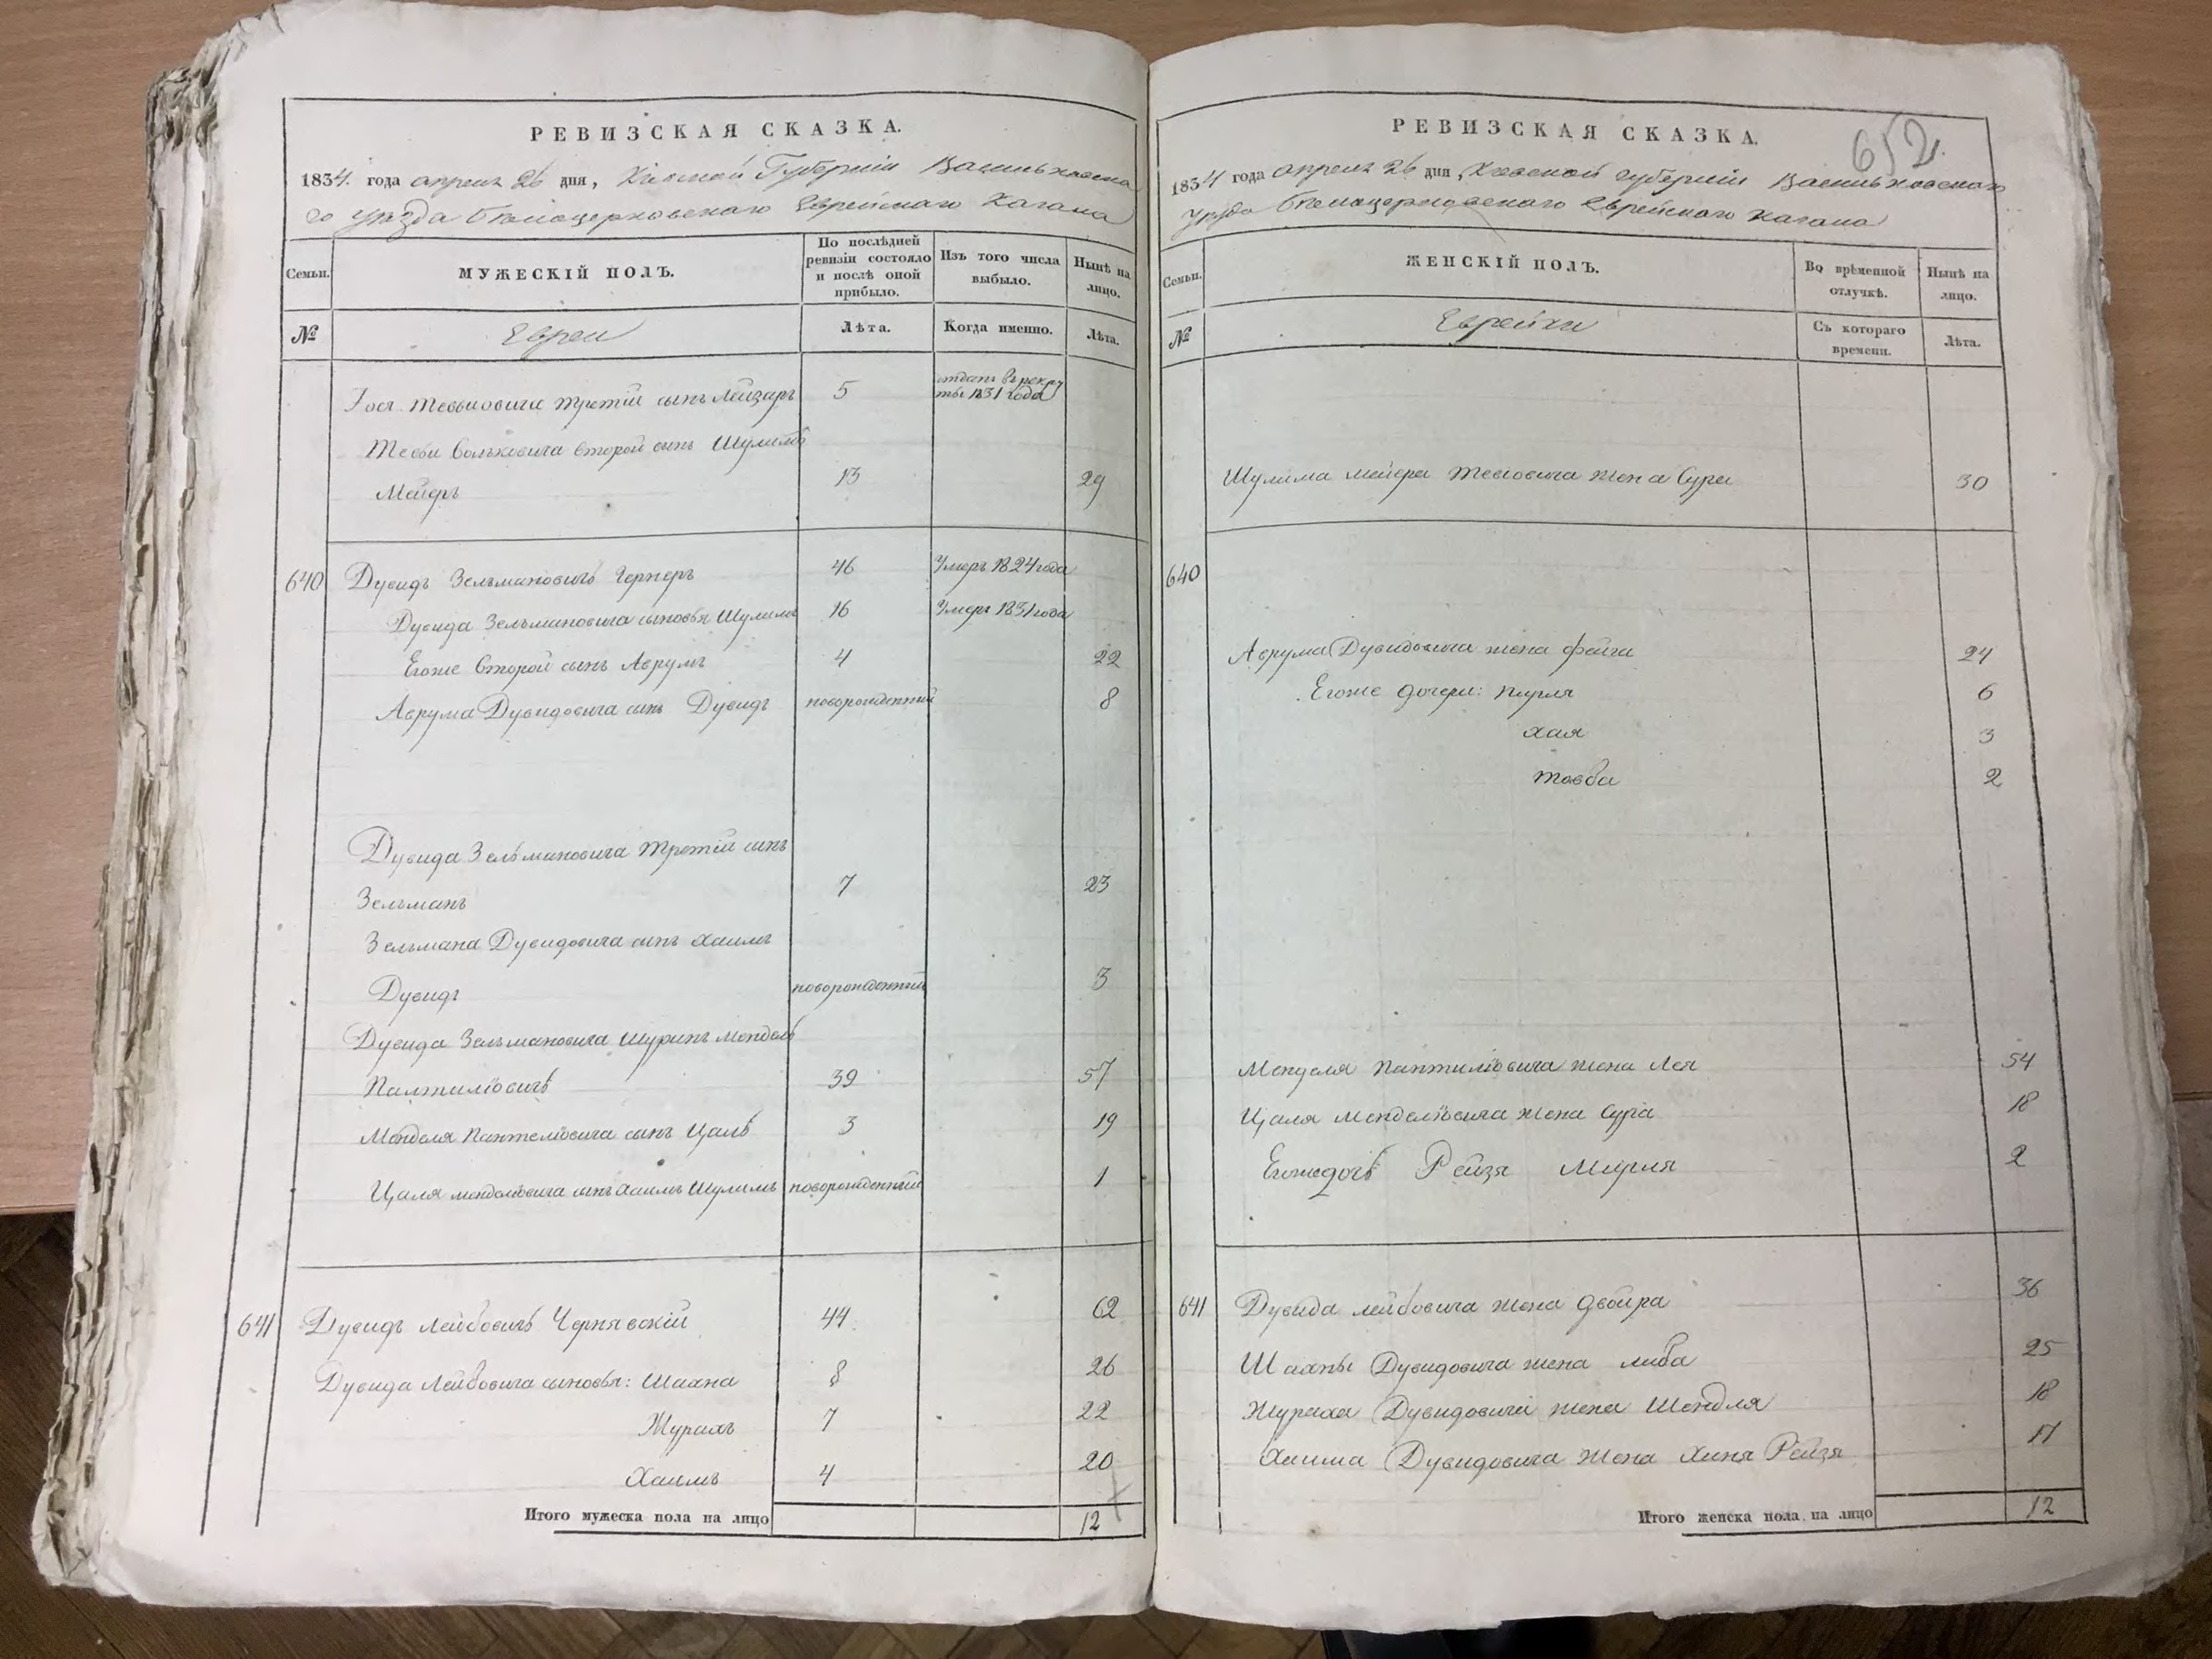 РЕВИЗСКАЯ СКАЗКА.
1834. года апреля 26 дня, Кіевской Губерніи Васильковска
го уезда белоцерковскаго Еврейскаго Кагала
Семьи.
МУЖЕСКІЙ ПОЛЪ.
По послѣдней ревизіи состояло и послѣ оной прибыло.
Изъ того числа выбыло.
Нынѣ на лицо.
№
Евреи
Лѣта.
Когда именно.
Лѣта.
Іося Тевьиовича третій сынъ Лейзаръ 5 отданъ въ рекру
ты 1831 года
Тевьи Вольковича второй сынъ Шулимъ
Мейеръ 13 29
640 Дувидъ Зельмановичъ 46 Умеръ 1824 года
Дувида Зельмановича сыновья Шулимъ 16 Умеръ 1831 года
Егоже второй сынъ Аврумъ 4 22
Аврума Дувидовича сынъ Дувидъ новорожденный 8
Дувида Зельмановича третій сынъ
Зельманъ 7 23
Зельмана Дувидовича сынъ Хаимъ
Дувидъ новорожденный 3
Дувида Зельмановича Шуринъ Мендель
Пантиліовичъ 39 57
Менделя Пантеліовича сынъ Цаль 3 19
Цаля Менделіовича сынъ Хаимъ Шулимъ новорожденный 1
641 Дувидъ Лейбовичъ Чернявскій 44. 62
Дувида Лейбовича сыновья: Шахна 8 26
Журахъ 7 22
Хаимъ 4 20
Итого мужеска пола на лицо 12
РЕВИЗСКАЯ СКАЗКА.
652.
1834 года апреля 26 дня, Кіевской губерніи Васильковскаго
уезда белоцерковскаго Еврейскаго Кагала
Семьи.
ЖЕНСКІЙ ПОЛЪ.
Во врѣменной отлучкѣ.
Нынѣ на лицо.
№
Еврейки
Съ котораго времени.
Лѣта.
Шулима Мейера Тевіовича жена Сура 30
640
Аврума Дувидовича жена Фейга 24
Егоже дочери: Перля 6
Хая 3
Товба 2
Менделя Пантиліовича жена Лея 54
Цаля Менделіовича жена Сура 18
Егоже дочь Рейзя Мирля 2
641 Дувида Лейбовича жена Двойра 36
Шахны Дувидовича жена Либа 25
Жураха Дувидовича жена Шендля 18
Хаима Дувидовича жена Хиня Рейзя 17
Итого женска пола на лицо 12